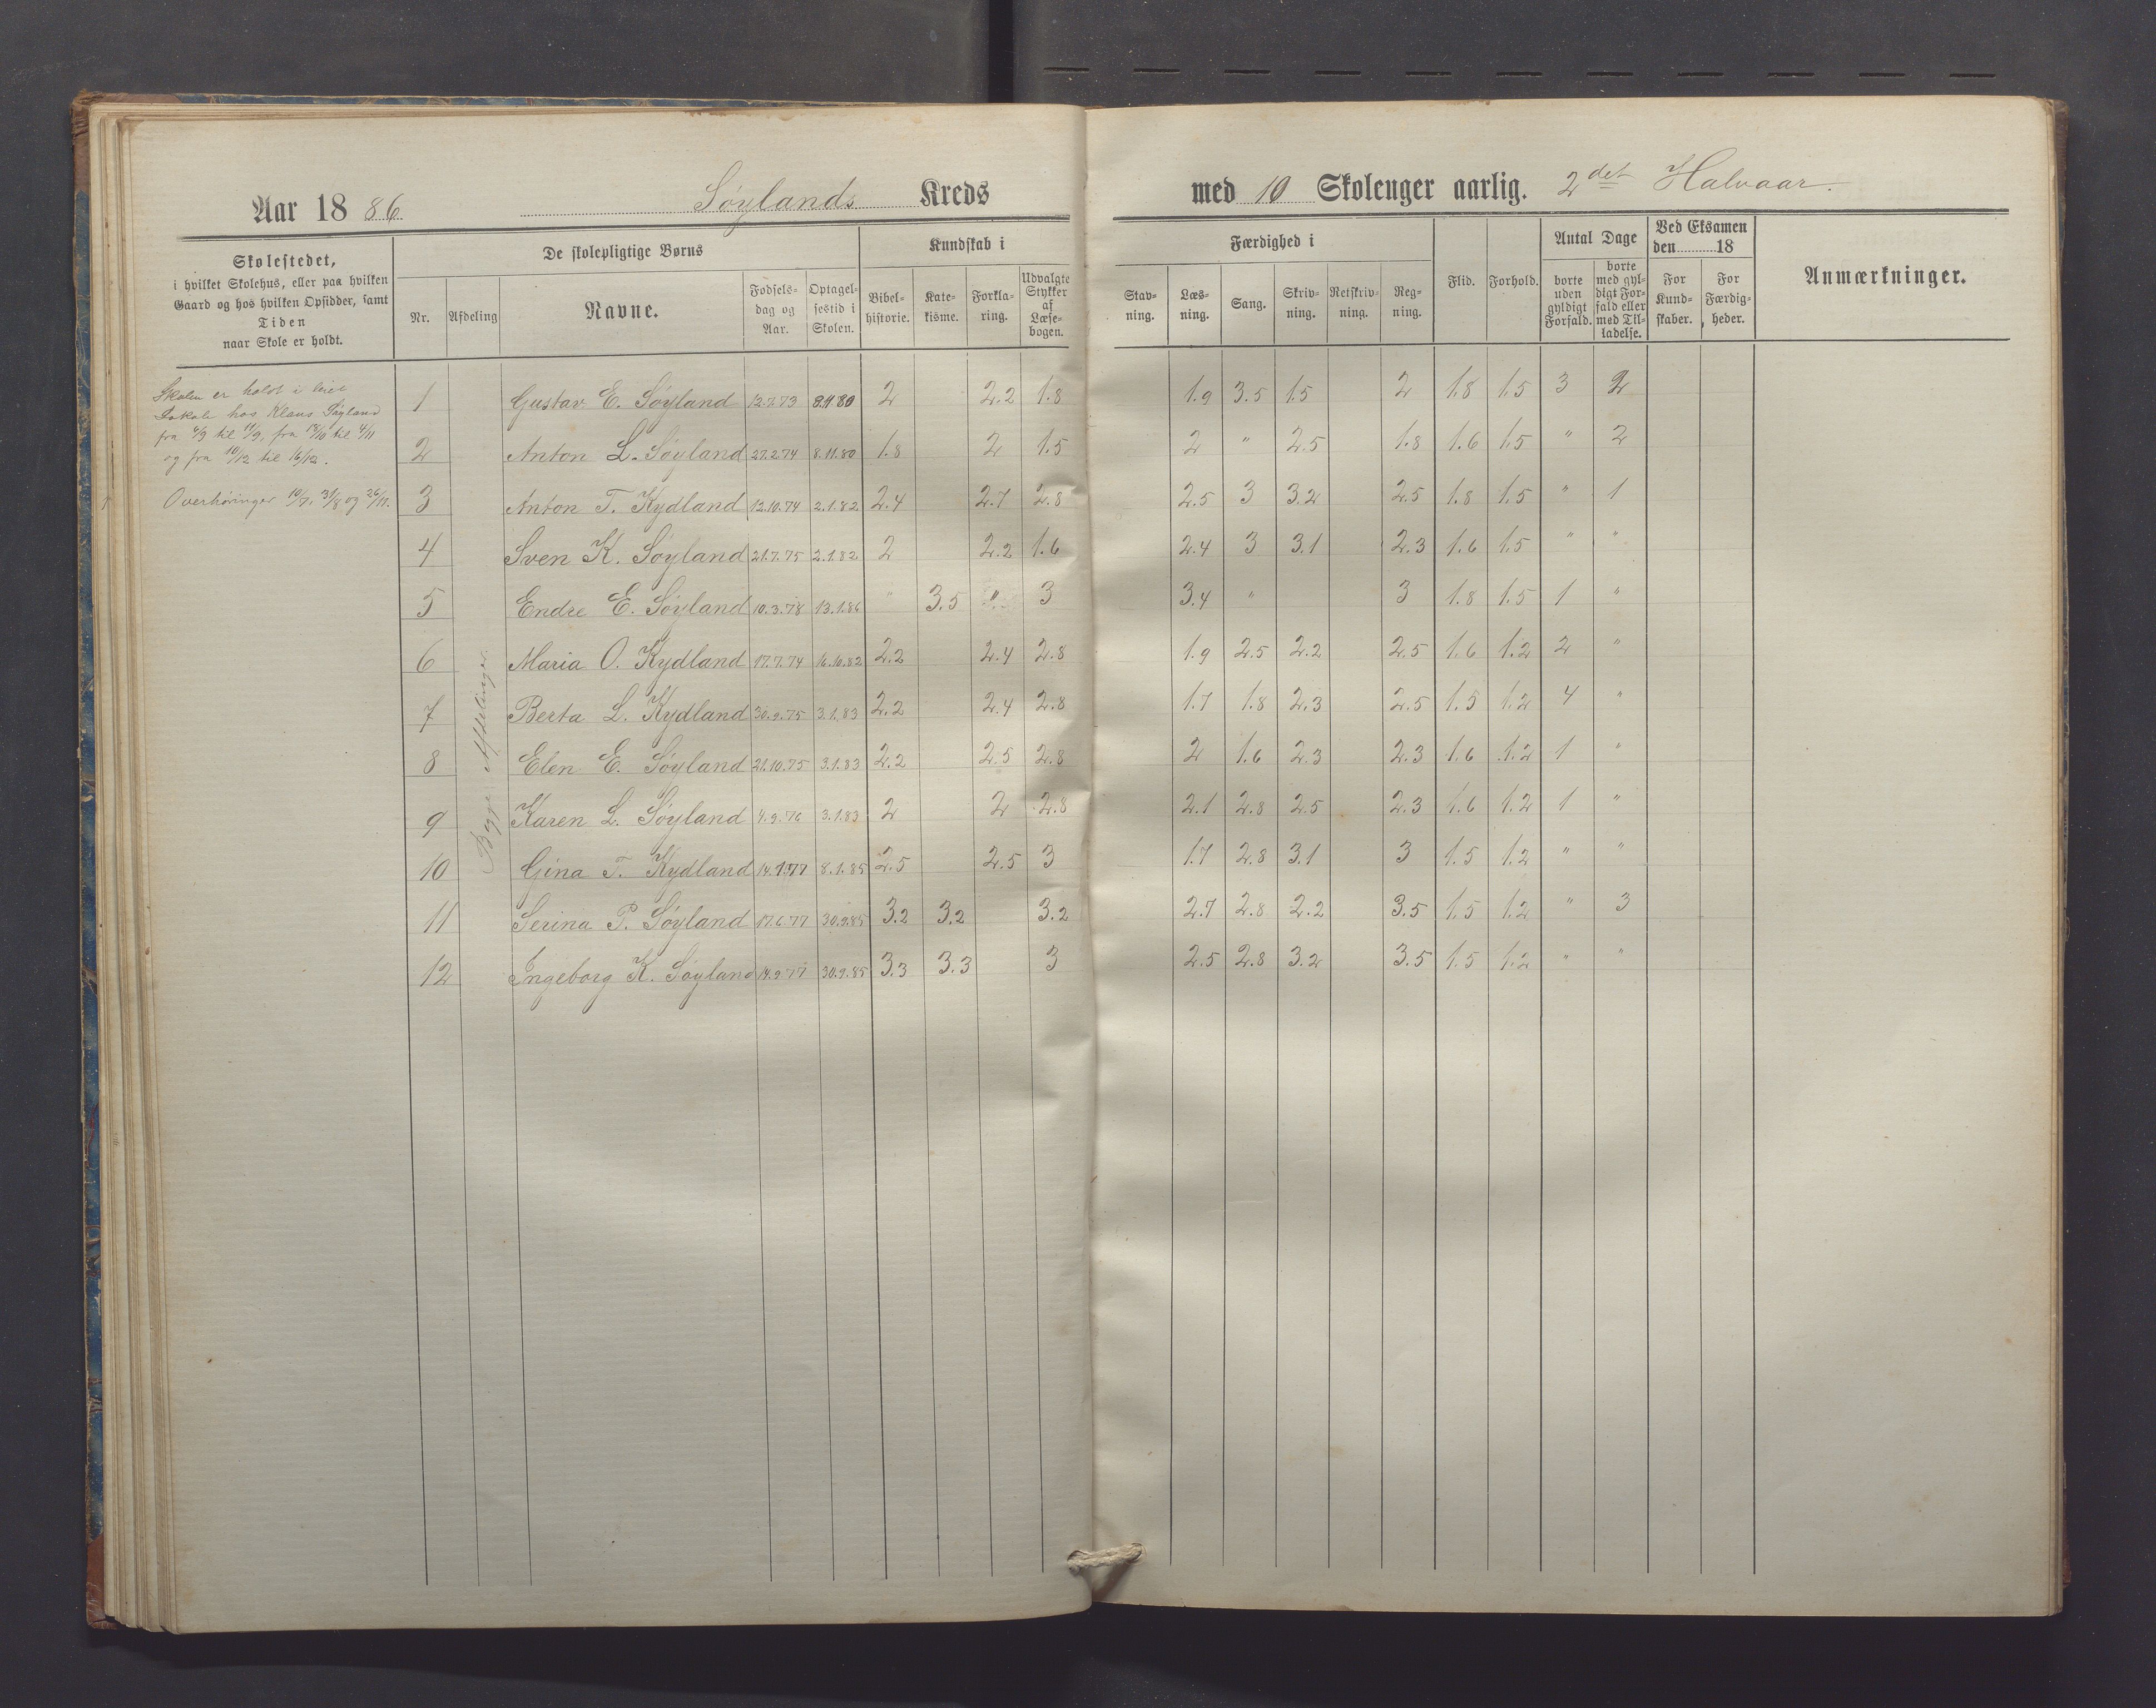 Aar 1886 Søylands Kreds med 10 Skoleuger aarlig. 2det Halvaar.
Skolestedet,
i hvilket Skolehus, eller paa hvilken
Gaard og hos hvilken Opsidder, samt
Tiden
naar Skole er holdt.
De skolepligtige Børns
Nr. Afdeling Navne. Fødselsdag og Aar. Optagelsestid i Skolen.
Kundskab i
Bibelhistorie. Katekisme. Forklaring. Udvalgte Stykker af Læsebogen.
Færdighed i
Stavning. Læsning. Sang. Skrivning. Retskrivning. Regning.
Flid. Forhold.
Antal Dage
borte uden gyldigt Forfald. borte med gyldigt Forfald eller med Tilladelse.
Ved Eksamen
den 18
For Kundskaber. For Færdigheder.
Anmærkninger.
Skolen er holdt i leiet
Lokale hos Klaus Søyland
fra 6/9 til 11/9, fra 18/10 til 4/11
og fra 10/12 til 16/12.
Overhøringer 10/7, 31/8 og 26/11.
Begge Afdelinger
1 Gustav E. Søyland 12.7.73 8.11.80 2 2.2 1.8 1.9 3.5 1.5 2 1.8 1.5 3 2
2 Anton L. Søyland 27.2.74 8.11.80 1.8 2 1.5 2 " 2.5 1.8 1.6 1.5 " 2
3 Anton T. Kydland 12.10.74 2.1.82 2.4 2.7 2.8 2.5 3 3.2 2.5 1.8 1.5 " 1
4 Sven K. Søyland 21.7.75 2.1.82 2 2.2 1.6 2.4 3 3.1 2.3 1.6 1.5 " "
5 Endre E. Søyland 10.3.78 13.1.86 " 3.5 " 3 3.4 " 3 1.8 1.5 1 "
6 Maria O. Kydland 17.7.74 16.10.82 2.2 2.4 2.8 1.9 2.5 2.2 2.5 1.6 1.2 2 "
7 Berta L. Kydland 30.9.75 3.1.83 2.2 2.4 2.8 1.7 1.8 2.3 2.5 1.5 1.2 4 "
8 Elen E. Søyland 21.10.75 3.1.83 2.2 2.5 2.8 2 1.6 2.3 2.3 1.6 1.2 1 "
9 Karen L. Søyland 4.9.76 3.1.83 2 2 2.8 2.1 2.8 2.5 2.3 1.6 1.2 1 "
10 Gina T. Kydland 14.1.77 8.1.85 2.5 2.5 3 1.7 2.8 3.1 3 1.5 1.2 " "
11 Serina P. Søyland 17.6.77 30.9.85 3.2 3.2 3.2 2.7 2.8 2.2 3.5 1.5 1.2 " 3
12 Ingeborg K. Søyland 14.9.77 30.9.85 3.3 3.3 3 2.5 2.8 3.2 3.5 1.5 1.2 " "